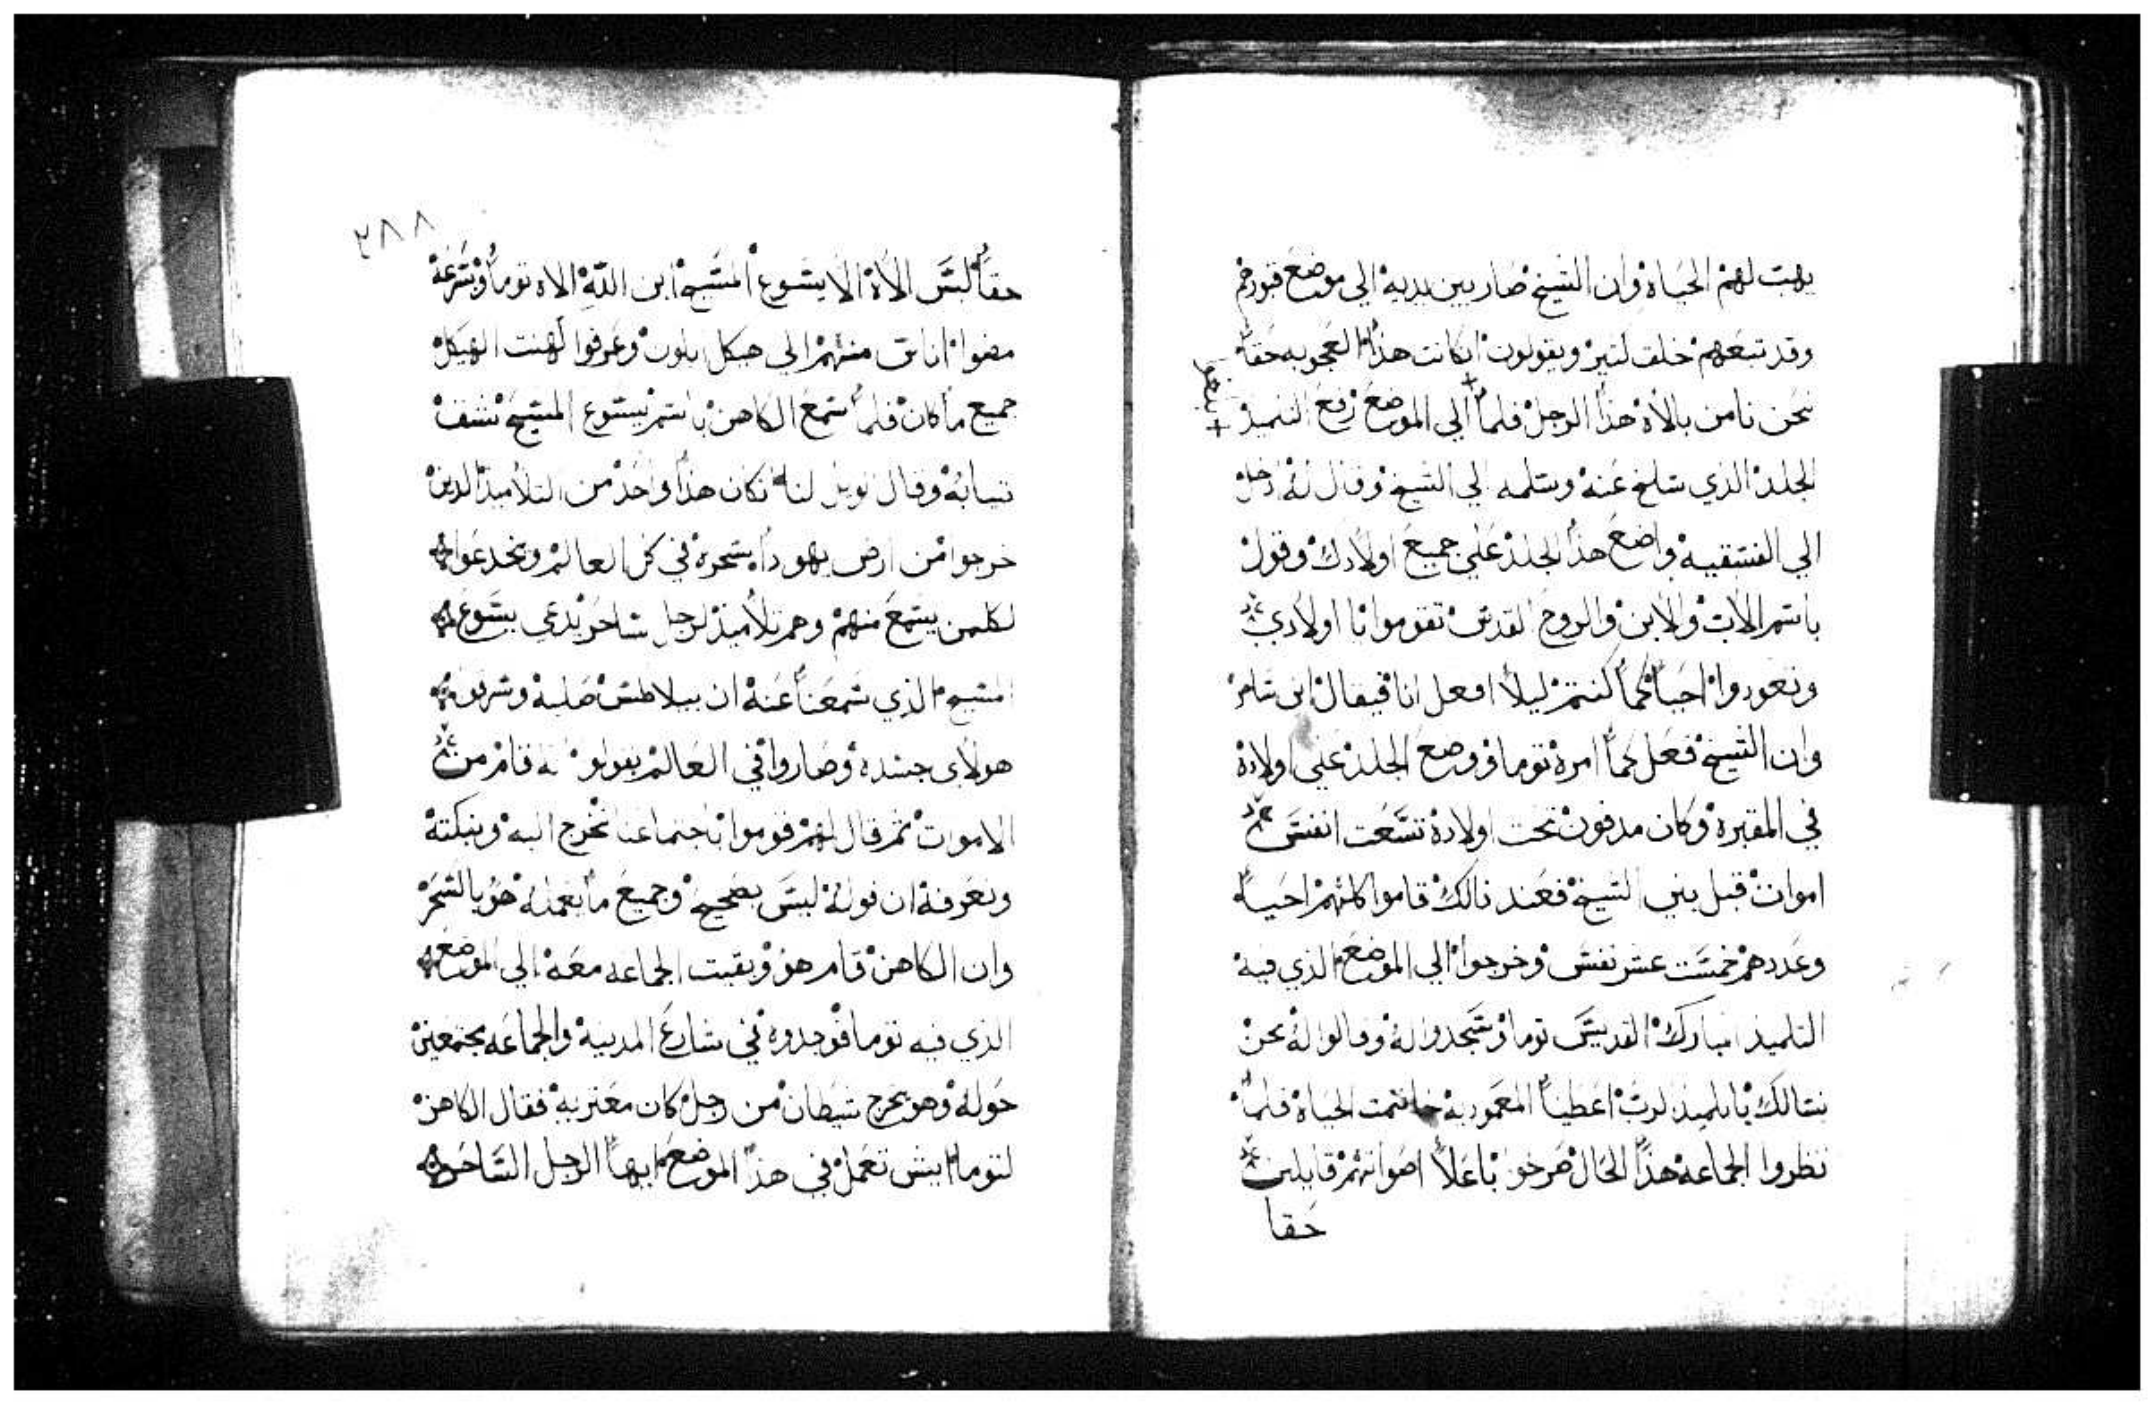 يهب لهم الحياه وان الشيخ صار بين يديه الي موضع قبورهم
وقد تبعهم خلق كتير ويقولون انكانت هذا العجوبه حقا
نحن نامن بالاه هذا الرجل فلما الي الموضع رفع التلميذ
الجلد الذي سلخ عنه وسلمه الي الشيخ وقال له ادخل
الي الفسقيه واضع هذا الجلد علي جميع اولادك وقول
باسم الاب والابن والروح القدس تقوموا يا اولادي
وتعودوا احيا كما كنتم ليلا افعل انا فيقال اني ساحر
وان الشيخ فعل كما امره توما ووضع الجلد علي اولاده
في المقبره وكان مدفون تحت اولاده تسعت انفس
اموات قبل بني الشيخ فعند دالك قاموا كلهم احيا
وعددهم خمست عشر نفس وخرجوا الي الموضع الذي فيه
التلميذ المبارك القديس توما وسجدوا له وقالوا له نحن
نسالك يا تلميذ الرب اعطينا المعموديه خاتمت الحياه فلما
نظروا الجماعه هذا الحال صرخوا باعلا اصواتهم قايلين
حقا
٢٨٨
حقا ليس الاه الا يسوع المسيح ابن الله الاه توما وبسرعه
مضوا اناس منهم الي هيكل ابلون وعرفوا لهنت الهيكل
جميع ما كان فلما سمع الكاهن باسم يسوع المسيح شقف
تيابه وقال الويل لنا تكان هذا واحد من التلاميذ الدين
خرجوا من ارض يهودا بسحره في كل العالم وتخدعوا
لكلمن يسمع منهم وهم تلاميذ لرجل ساحر يدعي يسوع
المسيح الذي سمعنا عنه ان بيلاطس صلبه وسرقوا
هولاي جسده وصاروا في العالم يقولو انه قام من
الاموت ثم قال لهم قوموا باجتماعنا نخرج اليه ونبكته
ونعرفه ان قوله ليس بصحيح وجميع ما يعمله هو بالسحر
وان الكاهن قام هو وبقيت الجماعه معه الي الموضع
الذي فيه توما فوجدوه في شارع المدينه والجماعه مجتمعين
حوله وهو يخرج شيطان من رجل كان معتريه فقال الكاهن
لتوما ايش تعمل في هذا الموضع ايها الرجل الساحر